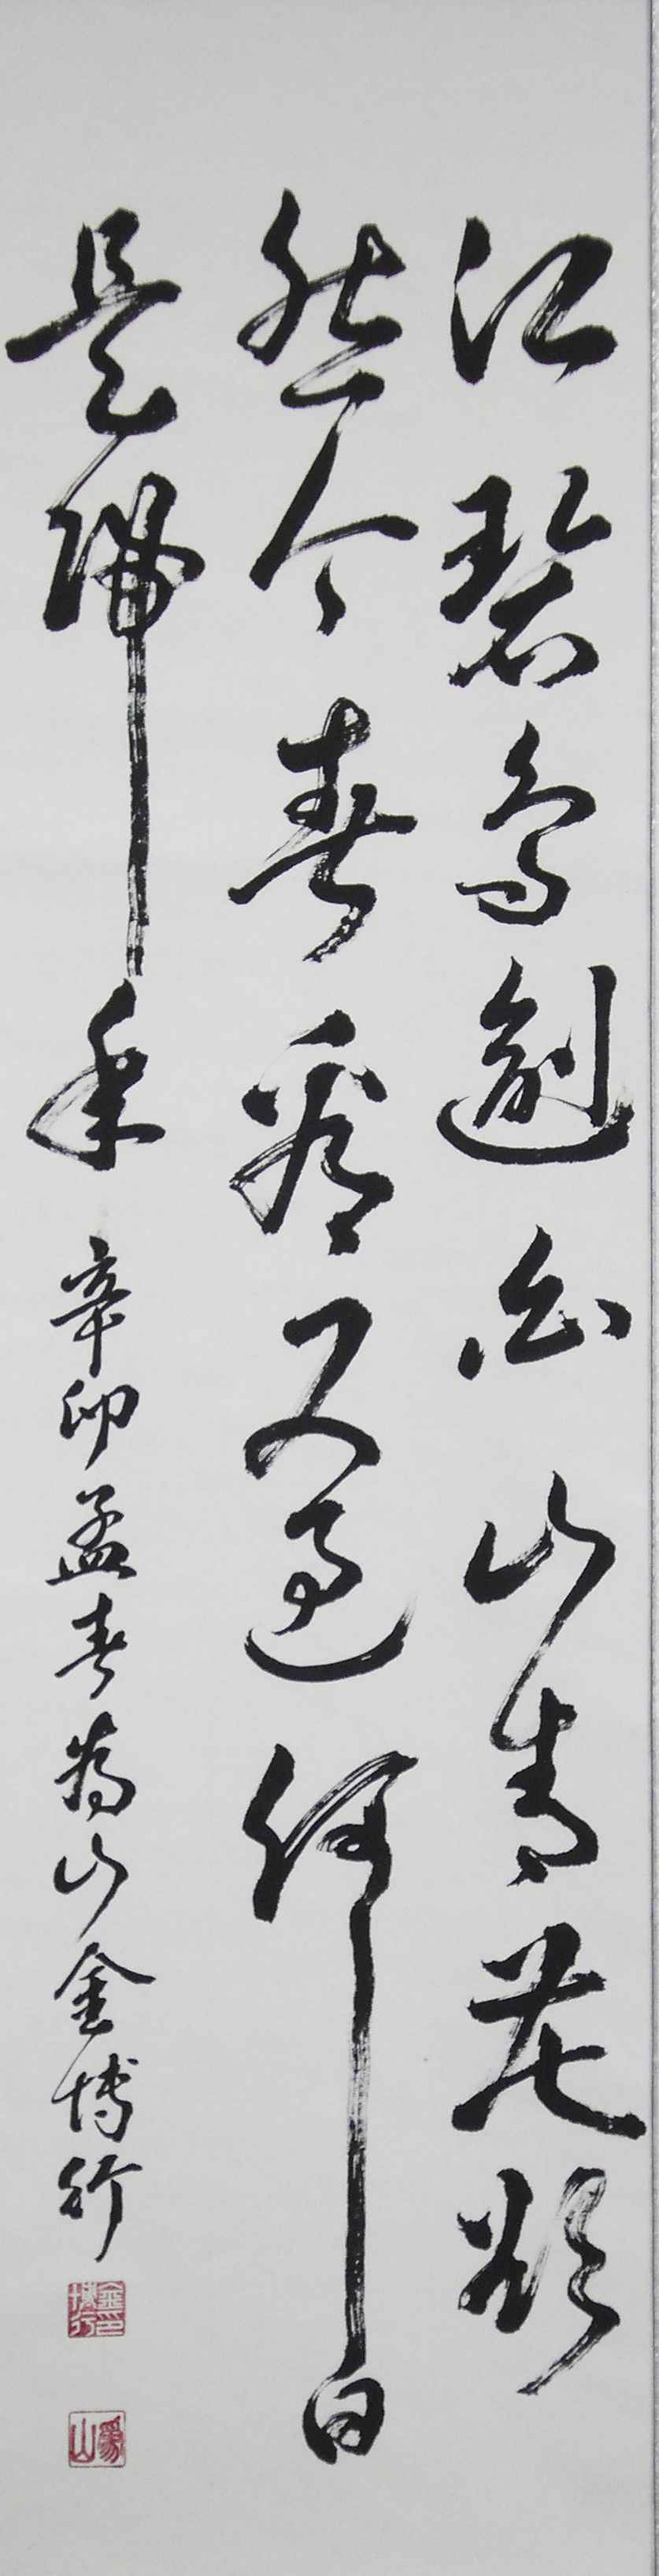 江碧鳥逾白山青花欲
然今春看又過何日
是歸年 辛卯孟春為山金博行
金博行印
為山